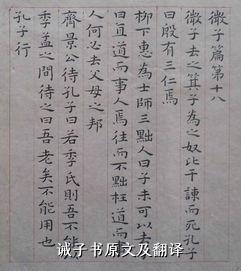 微子篇第十八
微子去之箕子為之奴比干諫而死孔子
曰殷有三仁焉
柳下惠為士師三黜人曰子未可以
曰直道而事人焉往而不黜枉道而
人何必去父母之邦
齊景公待孔子曰若季氏則吾不能
季孟之間待之曰吾老矣不能用也
孔子行
诫子书原文及翻译